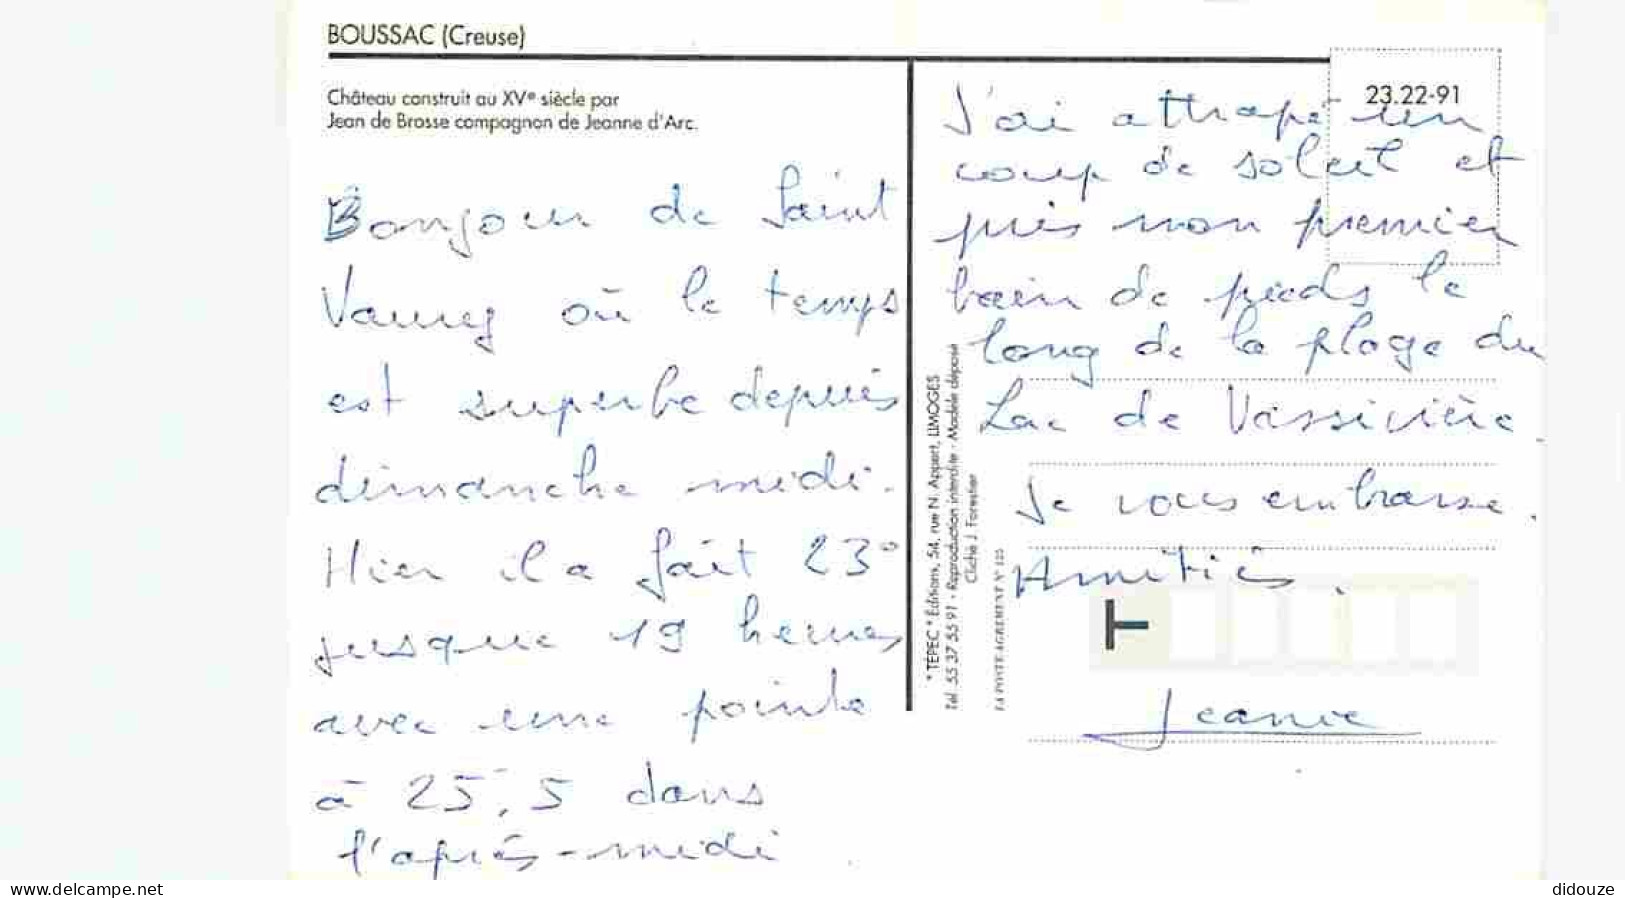 BOUSSAC (Creuse)
Château construit au XVe siècle par
Jean de Brosse compagnon de Jeanne d'Arc.
Bonjour de Saint
Vaury où le temps
est superbe depuis
dimanche midi.
Hier il a fait 23°
jusque 19 heures
avec une pointe
à 25,5 dans
l'après-midi.
23.22-91
J'ai attrapé un
coup de soleil et
pris mon premier
bain de pieds le
long de la plage du
Lac de Vassivière.
Je vous embrasse.
Amitiés.
Jeanie
* TÉPEC * Éditions, 54, rue N. Appert, LIMOGES
Tél. 55 37 55 91 - Reproduction interdite - Modèle déposé
Cliché J. Forestier
LA POSTE AGREMENT N° 125
T
www.delcampe.net
didouze